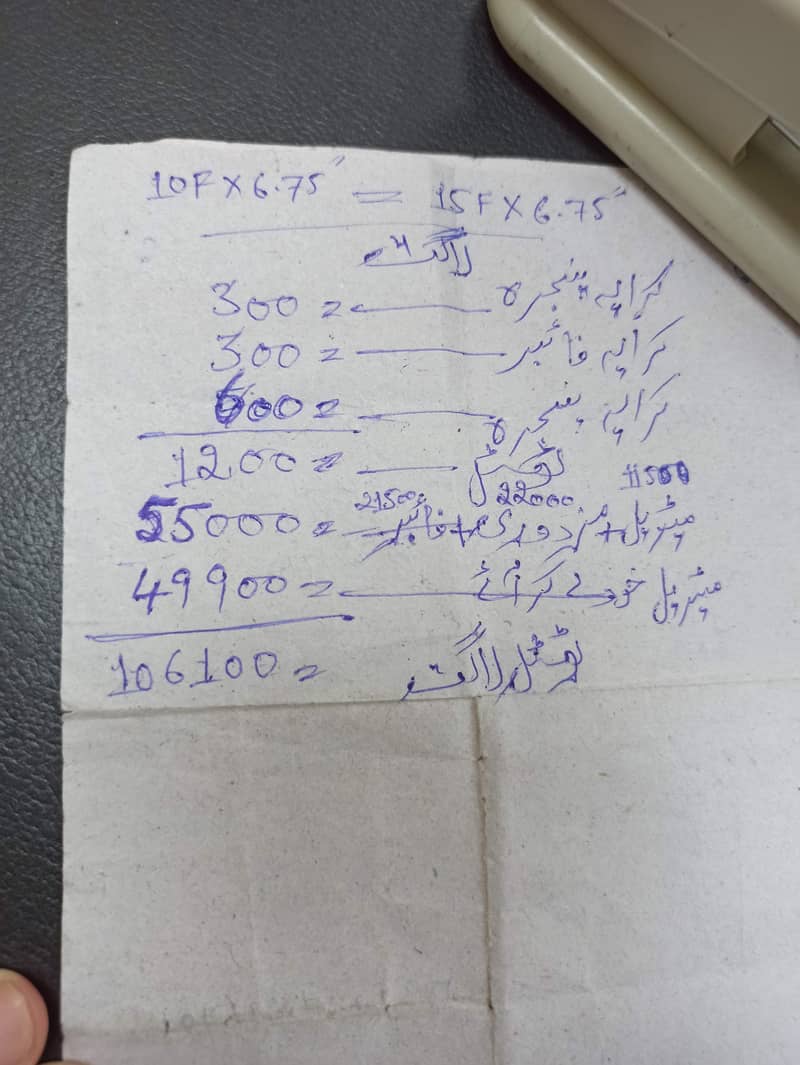 10F X 6.75" = 15F X 6.75"
لاگت
کرایہ پنجرہ — 300=
کرایہ فائبر — 300=
کرایہ پنجرہ — 600=
ٹوٹل — 1200=
21500 22000 11500
میٹریل + مزدوری + فائبر — 55000=
میٹریل خود لے کر آئے — 49900=
ٹوٹل لاگت 106100=